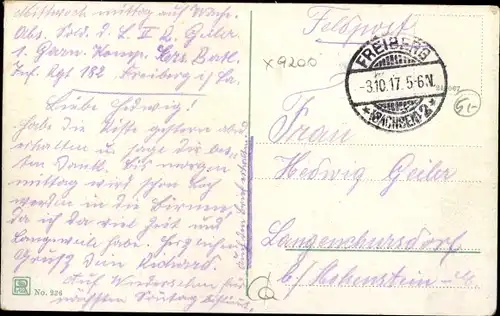 Mittwoch mittag auf Wache.
Abs. Sold. d. L. II R. Geiler
1. Garn. Komp. Ers. Batl.
Inf. Rgt 182 Freiberg i Sa.
Liebe Hedwig!
habe die Kiste gestern abend
erhalten u sage dir besten
Dank. Bis morgen
mittag wird schon
werden in die Birnen,
da ich da viel Zeit und
Langeweile habe. Herzlichen
Gruß Dein Richard.
Auf Wiedersehen
nächsten Sontag
No. 926
Feldpost
x9200
FREIBERG
-3.10.17. 5-6 N.
*(SACHSEN) 2*
Frau
Hedwig Geiler
Langenchursdorf
b/ Hohenstein